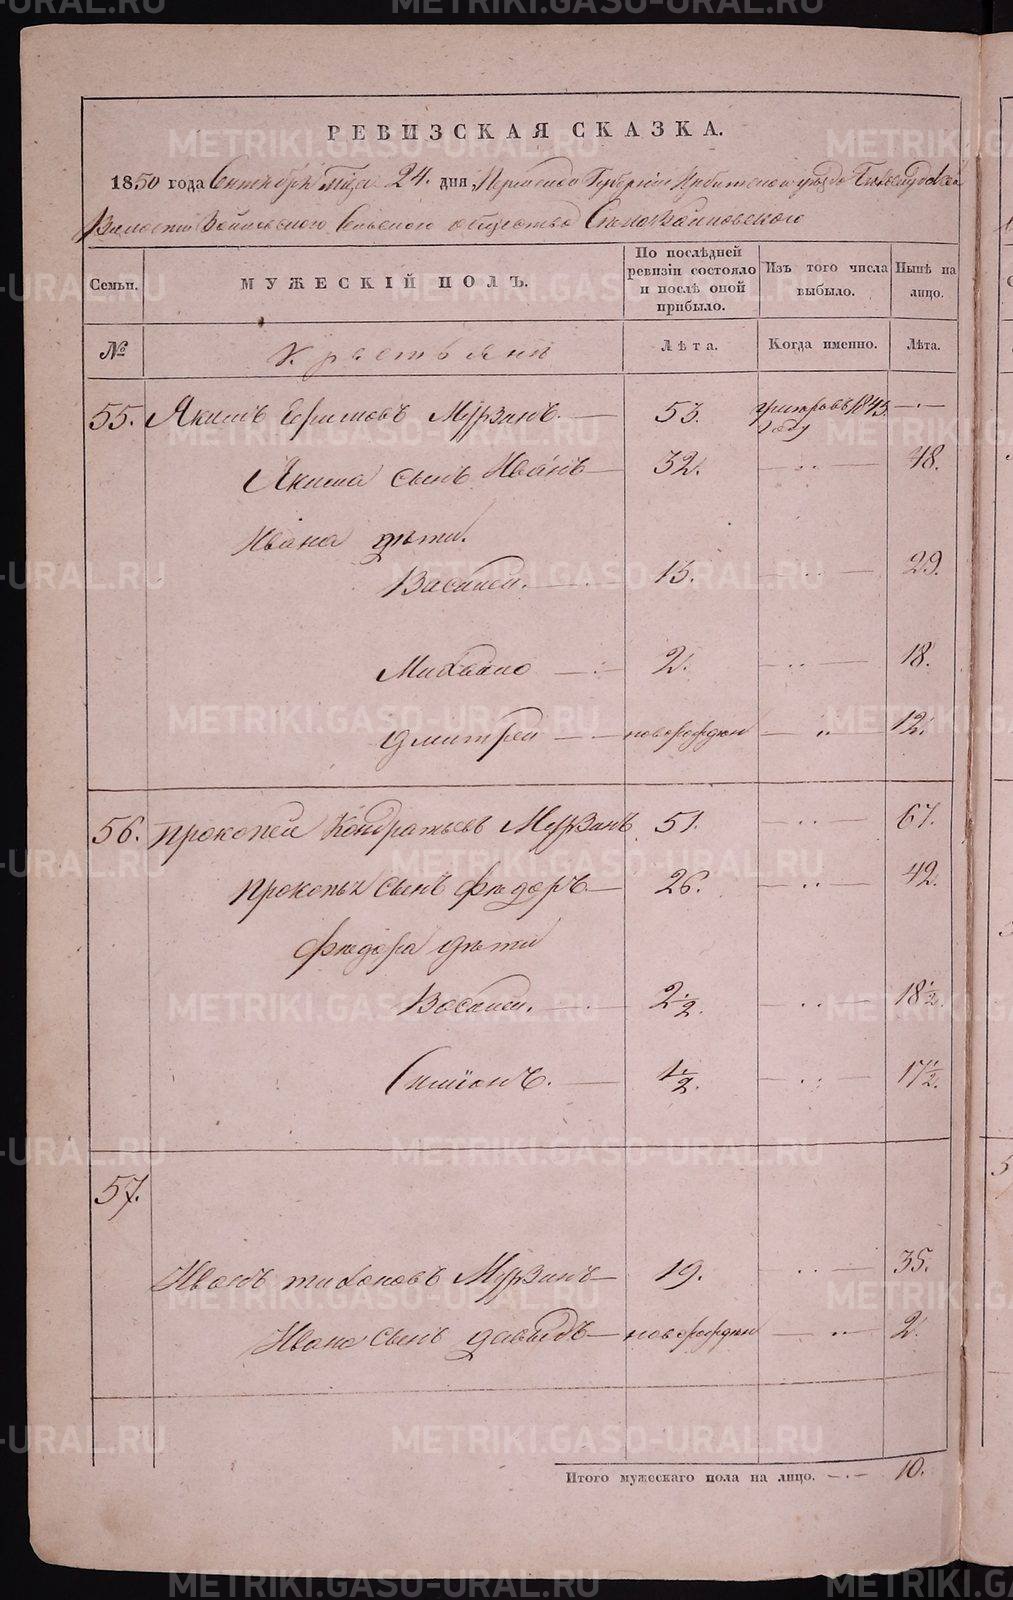 РЕВИЗСКАЯ СКАЗКА.
1850 года Октября мца 24. дня, Пермской Губернии Ирбитского уезда
Волости сельского общества
Семьи.
МУЖЕСКІЙ ПОЛЪ.
По послѣдней ревизіи состояло и послѣ оной прибыло.
Изъ того числа выбыло.
Нынѣ на лицо.
№
Крестьяне
Лѣта.
Когда именно.
Лѣта.
55. Якимъ Ефимовъ Мурзинъ. — 53. умеръ въ 1843 году — · —
Якима сынъ Иванъ — 32. — ·· — 48.
Ивана дѣти.
Василей. — 13. — ·· — 29.
Михайло — 2. — ·· — 18.
Дмитрей — новорожден — ·· — 12.
56. Прокопей Кондратьевъ Мурзинъ 51. — ·· — 67.
Прокопья сынъ Фёдоръ — 26. — ·· — 42.
Фёдора дѣти
Василей. — 2 1/2. — ·· — 18 1/2.
Симіонъ. — 1 1/2. — ·· — 17 1/2.
57.
Иванъ Тихоновъ Мурзинъ — 19. — ·· — 35.
Ивана сынъ Давыдъ — новорожден — ·· — 2.
Итого мужескаго пола на лицо. — · — 10.
METRIKI.GASO-URAL.RU